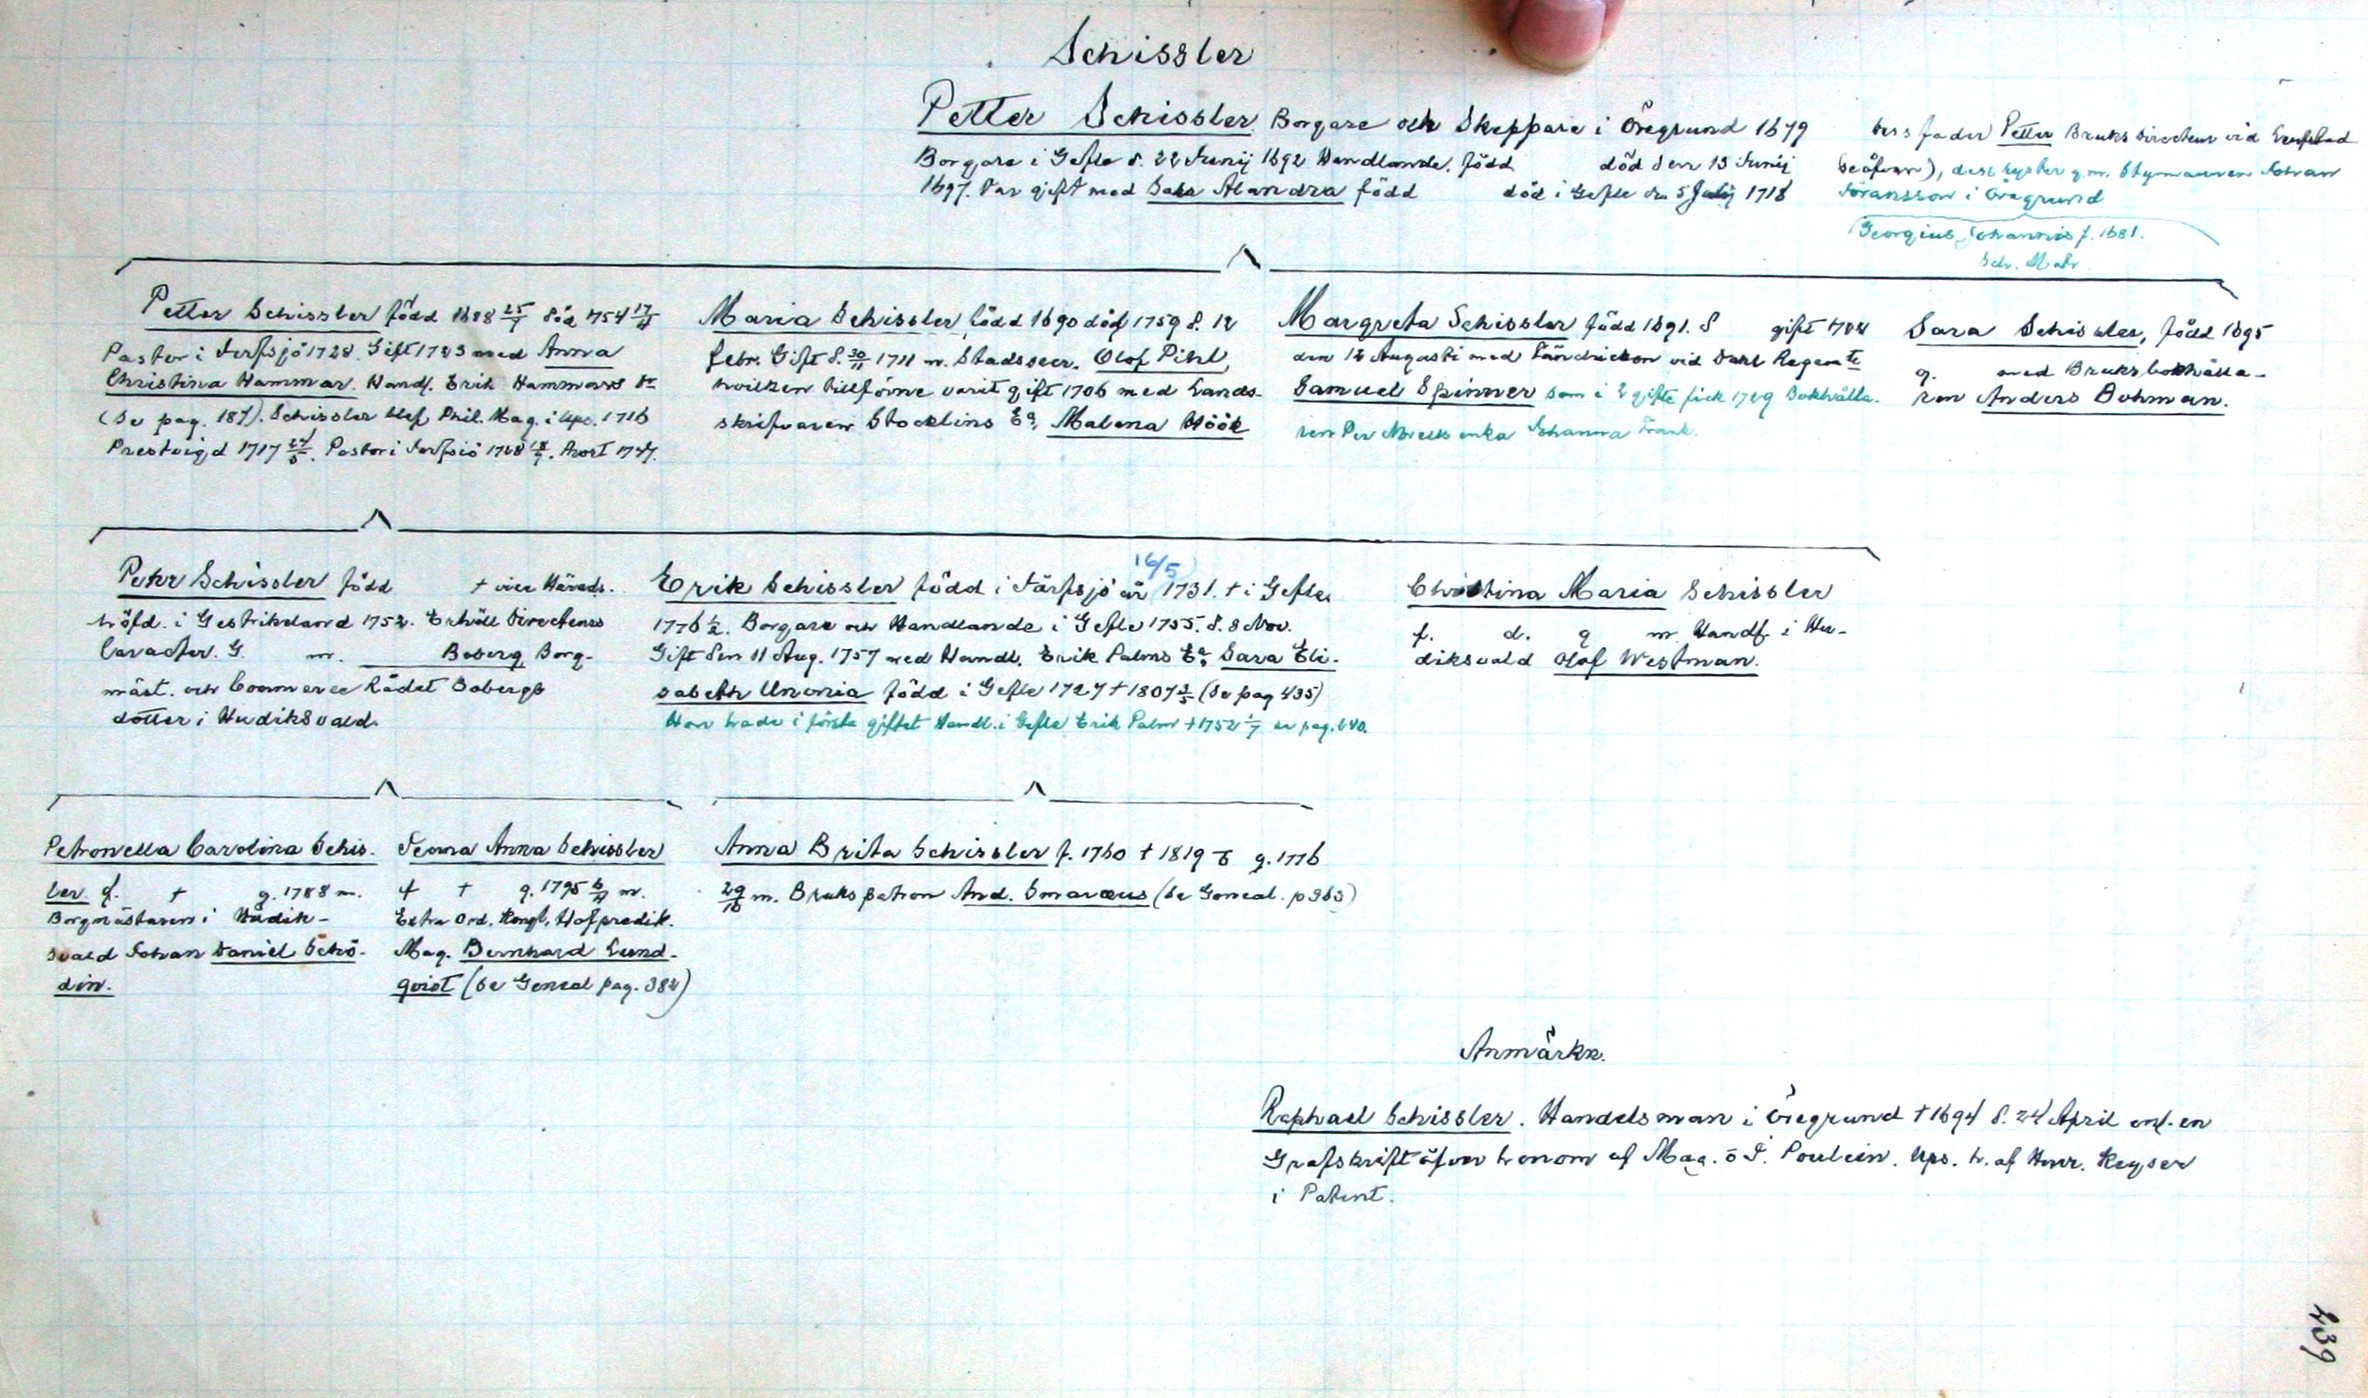 Schissler
Petter Schissler Borgare och Skeppare i Öregrund 1679
Borgare i Gefle d. 22 Junij 1692 Handlande. född död den 13 Junij
1697. Var gift med Sara Alandra född död i Gefle den 5 Julij 1718
dess fader Petter Bruks Directeur vid
dess syster g.m. Styrmannen Johan
Föransson i Öregrund
Georgius Johannis f. 1681.
Petter Schissler född 1688 25/7 död 1754 17/4
Pastor i Terfsjö 1728. Gift 1723 med Anna
Christina Hammar. Handl. Erik Hammars dr
(Se pag. 187). Schissler blef Phil. Mag. i Ups. 1716
Prestvigd 1717 Pastor i Terfsiö 1728 Prost 1747.
Maria Schissler, född 1690 död 1759 d. 12
febr. Gift d. 30/11 1711 m. Stadssecr. Olof Pihl,
hvilken tillförne varit gift 1706 med Lands-
skrifvaren Stocklins Ea, Malena Höök
Margreta Schissler född 1691. d gift 1724
den 12 Augusti med Fändricken vid Dahl Regem te
Samuel Spinner som i 2 gifte fick 1729 Bokhålla-
ren Per enka Johanna Frank.
Sara Schissler, född 1695
g. med Bruksbokhålla-
ren Anders Bohman.
Peter Schissler född + vice Härads-
höfd. i Gestrikeland 1752. Erhöll Directeurs
Caracter. G. m. Boberg Borg-
mäst. och Commerce Rådet Bobergs
dotter i Hudiksvald.
16/5
Erik Schissler född i Tärfsjö år 1731. + i Gefle
1776 1/2. Borgare och Handlande i Gefle 1755. d. 8 Nov.
Gift den 11 Aug. 1757 med Handl. Erik Palms Ea. Sara Eli-
sabeth Unonia född i Gefle 1727 + 1807 3/5 (Se pag 435)
Hon hade i första giftet Handl. i Gefle Erik Palm + 1752 1/7 se pag. 640.
Christina Maria Schissler
f. d. g m. Handl. i Hu-
diksvald Olof Westman.
Petronella Carolina Schis-
ler. f. + g. 1788 m.
Borgmästaren i Hudik-
svald Johan Daniel Schö-
din.
Anna Schissler
f + g. 1795 6/4 m.
Extra Ord. Kongl. Hofpredik.
Mag. Bernhard Lund-
qvist (Se Geneal pag. 382)
Anna Brita Schissler f. 1760 + 1819 g. 1776
29/10 m. Brukspatron And. Smaræus (Se Geneal. p 363)
Anmärkn.
Raphael Schissler. Handelsman i Öregrund + 1694 d. 24 April enl. en
Grafskrift öfver honom af Mag. Ups. tr. af Henr. Keyser
i Patent.
439